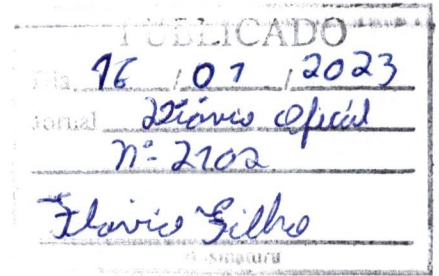 PUBLICADO
Dia 16 / 01 / 2023
Jornal Diário Oficial
Nº 2102
Flávio Gilho
Assinatura